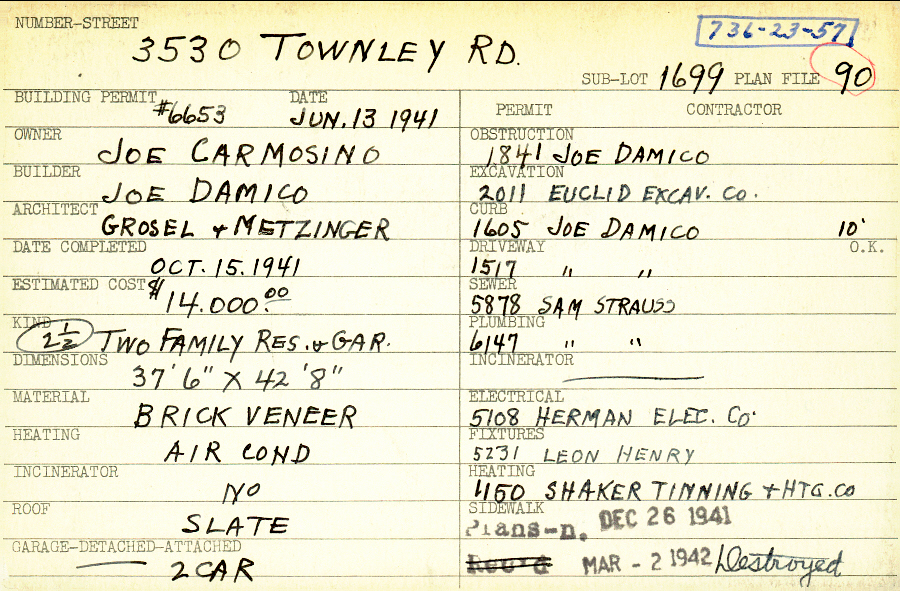 NUMBER-STREET
3530 TOWNLEY RD.
736-23-57
SUB-LOT 1699 PLAN FILE 90
BUILDING PERMIT #6653 DATE JUN. 13 1941
OWNER JOE CARMOSINO
BUILDER JOE DAMICO
ARCHITECT GROSEL + METZINGER
DATE COMPLETED OCT. 15. 1941
ESTIMATED COST $14.000.00
KIND 2 1/2 TWO FAMILY RES. & GAR.
DIMENSIONS 37' 6" X 42' 8"
MATERIAL BRICK VENEER
HEATING AIR COND
INCINERATOR NO
ROOF SLATE
GARAGE-DETACHED-ATTACHED 2 CAR
PERMIT CONTRACTOR
OBSTRUCTION 1841 JOE DAMICO
EXCAVATION 2011 EUCLID EXCAV. CO.
CURB 1605 JOE DAMICO 10'
DRIVEWAY 1517 " " O.K.
SEWER 5878 SAM STRAUSS
PLUMBING 6147 " "
INCINERATOR
ELECTRICAL 5108 HERMAN ELEC. CO.
FIXTURES 5231 LEON HENRY
HEATING 1150 SHAKER TINNING + HTG. CO
SIDEWALK
Plans-n. DEC 26 1941
MAR - 2 1942 Destroyed